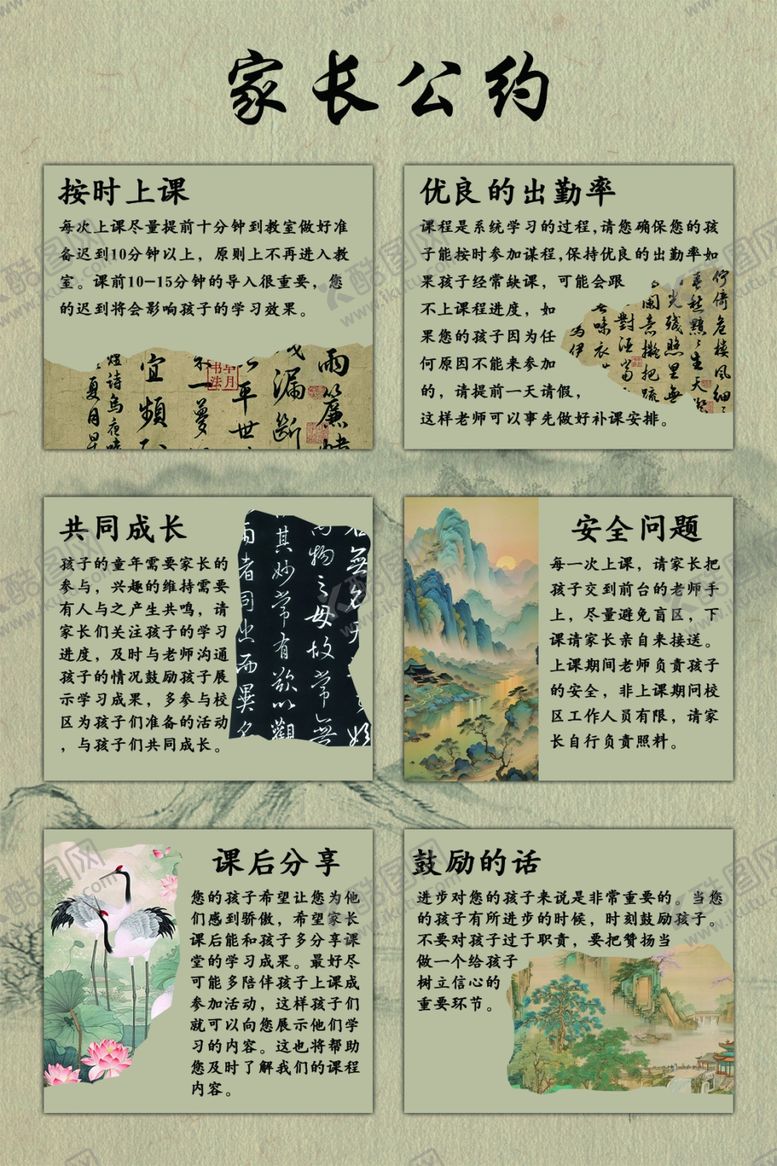 家长公约
按时上课
每次上课尽量提前十分钟到教室做好准
备迟到10分钟以上，原则上不再进入教
室。课前10-15分钟的导入很重要，您
的迟到将会影响孩子的学习效果。
优良的出勤率
课程是系统学习的过程,请您确保您的孩
子能按时参加谋程,保持优良的出勤率如
果孩子经常缺课，可能会跟
不上课程进度，如
果您的孩子因为任
何原因不能来参加
的，请提前一天请假，
这样老师可以事先做好补课安排。
佇倚危樓風細細
共同成长
孩子的童年需要家长的
参与，兴趣的维持需要
有人与之产生共鸣，请
家长们关注孩子的学习
进度，及时与老师沟通
孩子的情况鼓励孩子展
示学习成果，多参与校
区为孩子们准备的活动
，与孩子们共同成长。
物之母故常無
其妙常有欲以觀
者同出而異名
安全问题
每一次上课，请家长把
孩子交到前台的老师手
上，尽量避免盲区，下
课请家长亲自来接送。
上课期间老师负责孩子
的安全，非上课期问校
区工作人员有限，请家
长自行负责照料。
课后分享
您的孩子希望让您为他
们感到骄傲，希望家长
课后能和孩子多分享课
堂的学习成果。最好尽
可能多陪伴孩子上课成
参加活动，这样孩子们
就可以向您展示他们学
习的内容。这也将帮助
您及时了解我们的课程
内容。
鼓励的话
进步对您的孩子来说是非常重要的。当您
的孩子有所进步的时候，时刻鼓励孩子。
不要对孩子过于职责，要把赞扬当
做一个给孩子
树立信心的
重要环节。